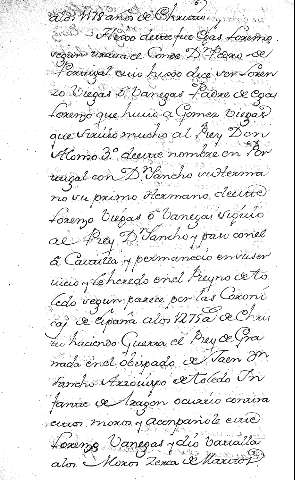 a los 1178 años de Christo.
Nieto de este fue Egas Lorenzo
segun trata el Conde Dn. Pedro de
Portugal cuio hijo dice ser Loren
zo Viegas ó Vanegas Padre de Egas
Lorenzo que huvo a Gomez Viegas
que sirvió mucho al Rey Don
Alonso 3º de este nombre en Por
tugal con Dn. Sancho su Herma
no su primo Hermano, de este
Lorenzo Viegas ó Vanegas siguió
al Rey Dn. Sancho y paso con el
á Castilla y permaneció en su ser
vicio y le heredo en el Reyno de To
ledo segun parece por las Coroni
cas de España a los 1275 de Chris
to haciendo Guerra el Rey de Gra
nada en el obispado de Jaen Dn.
Sancho Arzobispo de Toledo In
fante de Aragon ocurrio contra
estos moros y acompañole este
Lorenzo Vanegas y dio batalla
a los Moros zerca de Martos